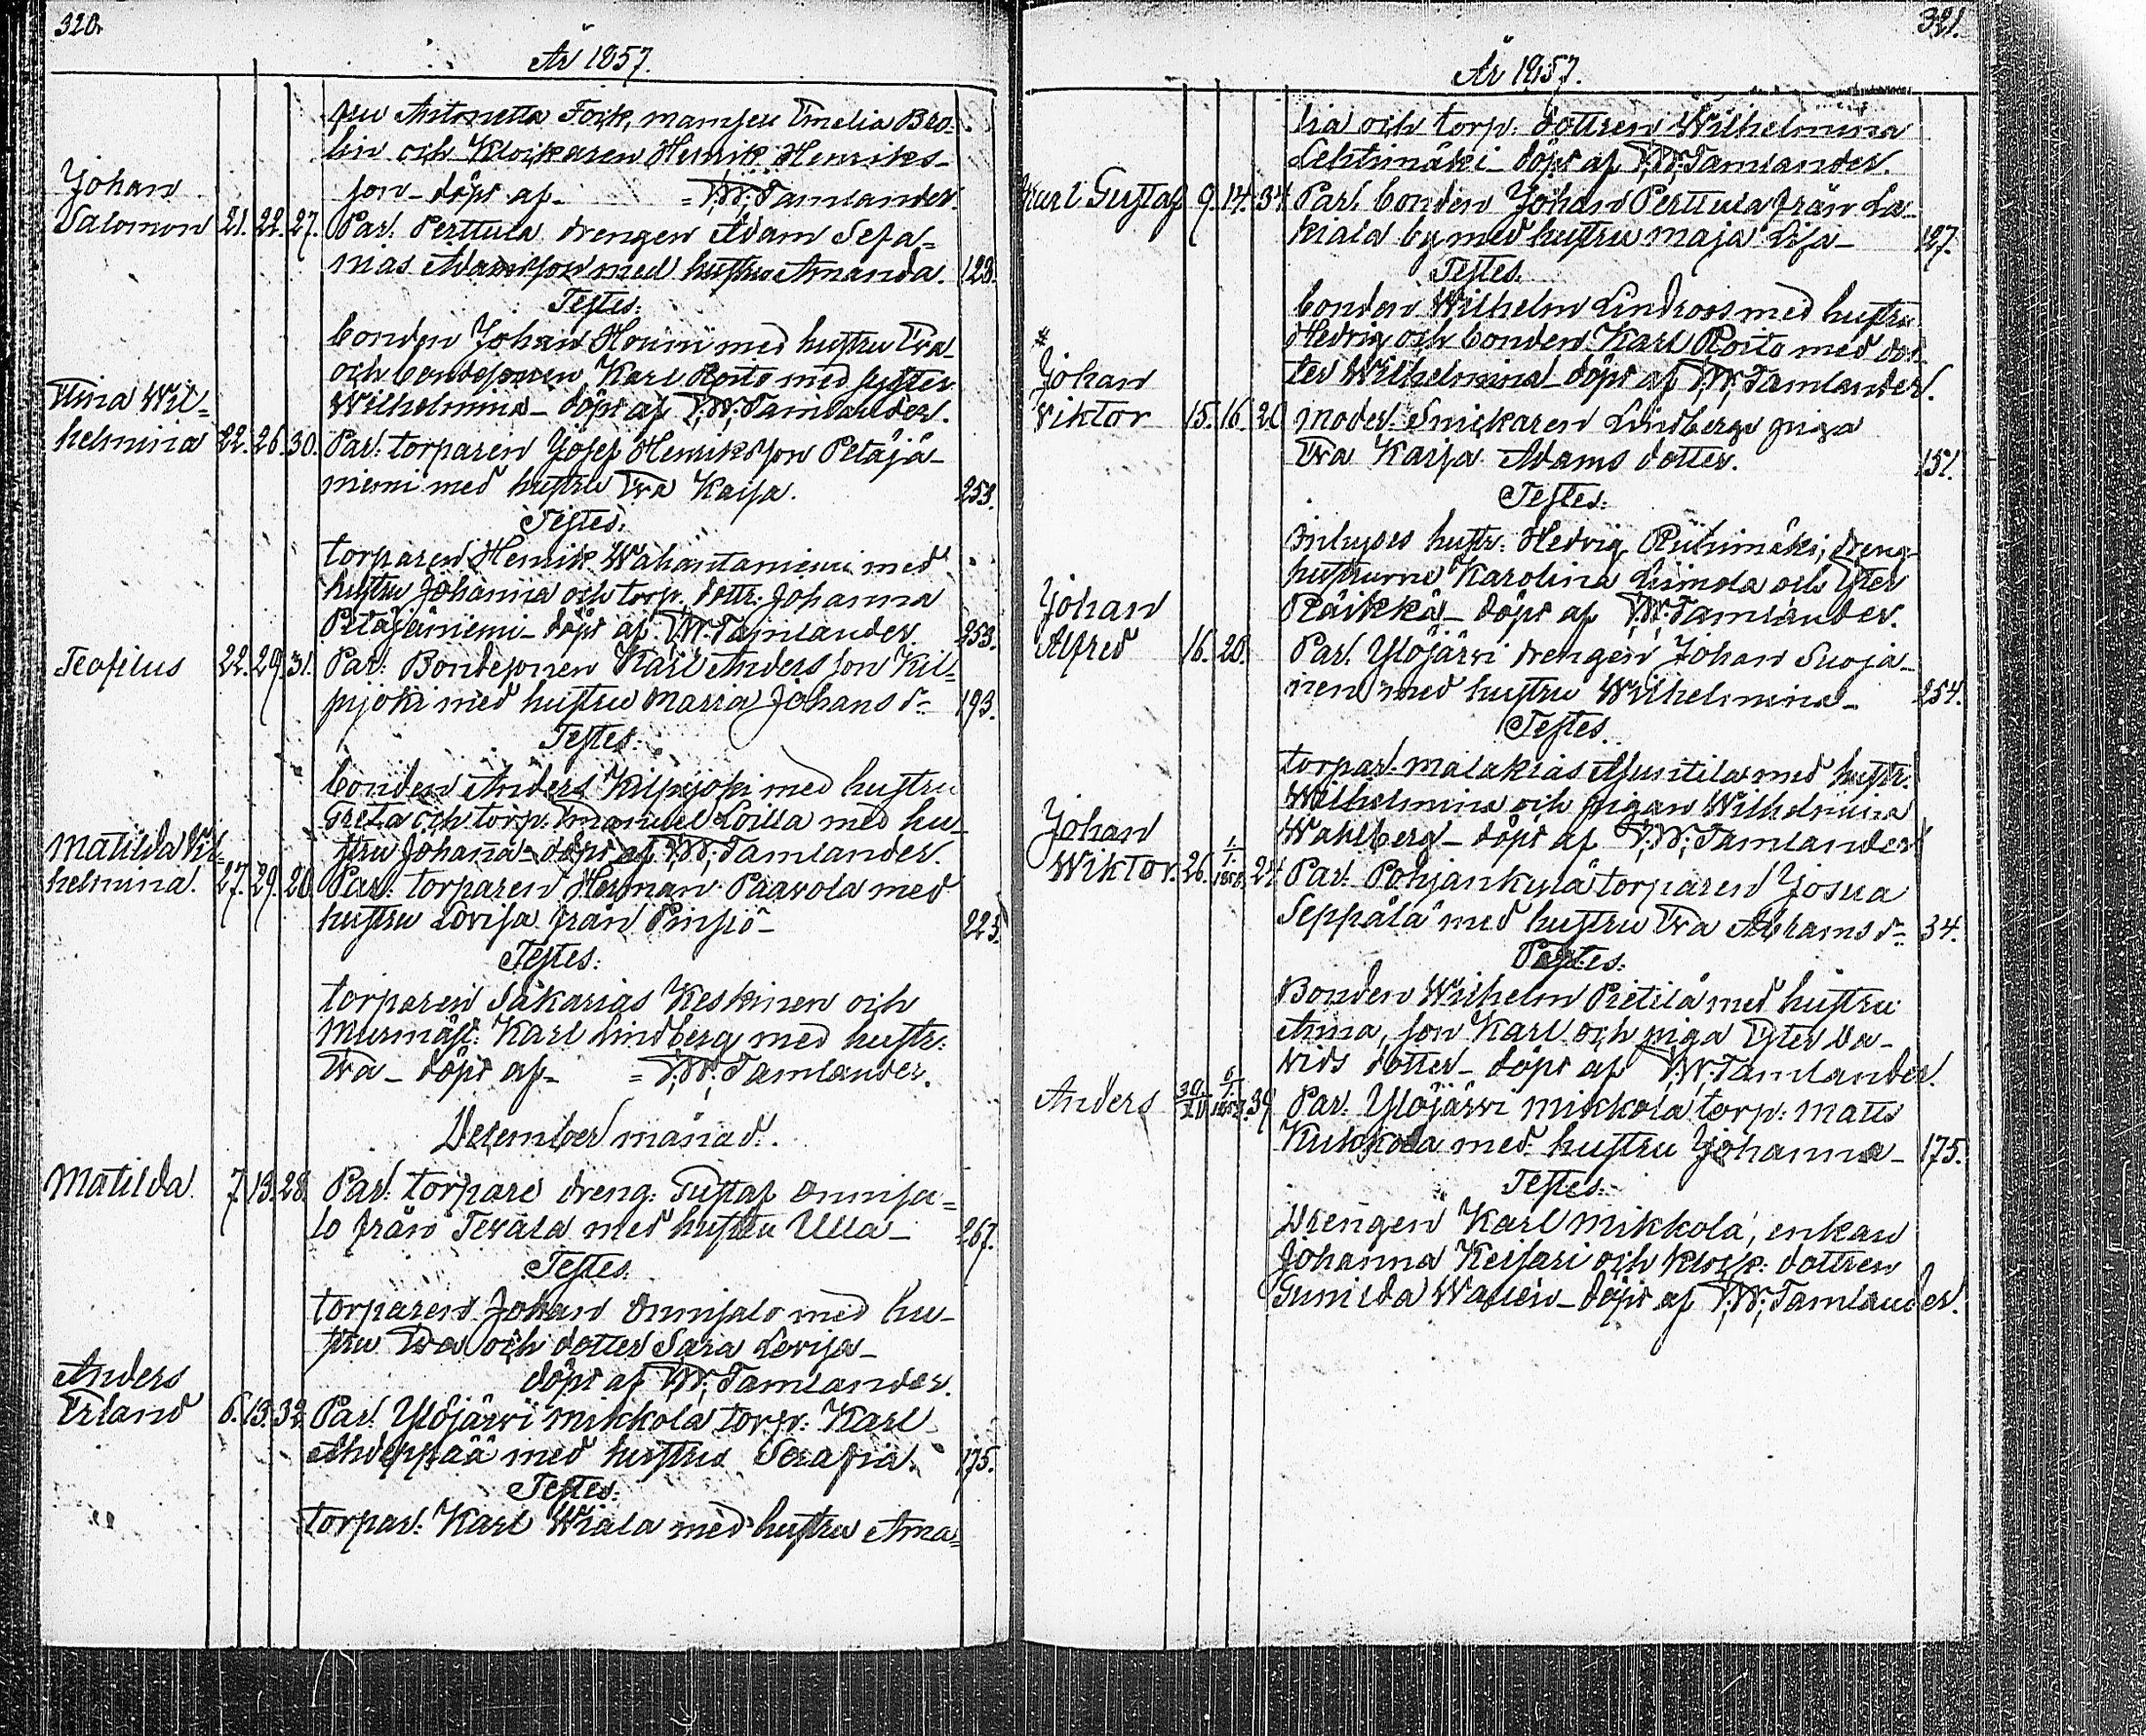 320.
År 1857.
fru Antonetta Fock, mamsell Emelia Bro-
lin och Klockaren Henrik Henriks-
son - döpt af - = F.W. Tamlander.
Johan
Salomon 21. 22. 27. Par. Perttula drengen Adam Sefa-
nias Adamsson med hustru Amanda. 123.
Testes:
bonden Johan Hounii med hustru Eva -
och bondesonen Karl Roito med syster
Wilhelmina - döpt af F.W. Tamlander.
Wil-
helmina 22. 26. 30. Par: torparen Josef Henriksson Petäjä-
niemi med hustru Eva Kaisa. 253.
Testes:
torparen Henrik Wahantaniemi med
hustru Johanna och torp. dottr. Johanna
Petäjäniemi - döpt af F.W. Tamlander. 253.
Teofilus 22. 29. 31. Par: Bondesonen Karl Andersson Kil-
pijoki med hustru Maria Johans dr. 193.
Testes:
bonden Anders Kilpijoki med hustru
Greta och torp. Emanuel Loilla med hu-
stru Johana - döpt af F.W. Tamlander.
Matilda Vil-
helmina. 27. 29. 20. Par: torparen Herman Paavola med
hustru Lovisa från Pinsiö - 223.
Testes:
torparen Sakarias Keskinen och
Murmäst: Karl Lindberg med hustr:
Eva - döpt af - = F.W. Tamlander.
December månad.
Matilda. 7. 13. 28. Par: torpare dreng: Gustaf Onnisa-
lo från Tevala med hustru Ulla - 267.
Testes:
torparen Johan Onnisalo med hu-
stru Eva och dotter Sara Lovisa -
döpt af F.W. Tamlander.
Anders
Erland 6. 13. 32. Par. Ylöjärvi Mikkola torp: Karl
Ahdeppää med hustru Serafia. 175.
Testes:
torpar: Karl Wiala med hustru Ama-
321.
År 1857.
lia och torp: dottren Wilhelmina
Lehtimäki - döpt af F.W. Tamlander.
Karl Gustaf 9. 14. 34. Par. bonden Johan Perttula från La-
kiala by med hustru Maja Lisa - 127.
Testes:
bonden Wilhelm Lindroos med hustru
Hedvig och bonden Karl Roito med dot-
ter Wilhelmina - döpt af F.W. Tamlander.
*
Johan
Viktor 15. 16. 20 moder. Snickaren Lindbergs piga
Eva Kaisa Adams dotter. 151.
Testes:
Inhyses hustr: Hedvig Riihimäki, dreng-
hustrurne Karolina Liimola och Ester
Räikkä - döpt af F.W. Tamlander.
Johan
Alfred 16. 20. Par. Ylöjärvi drengen Johan Suoja-
nen med hustru Wilhelmina - 254.
Testes.
torpar. Malakias Muntila med hustr.
Wilhelmina och pigan Wilhelmina
Wahlberg - döpt af F.W. Tamlander
Johan
Wiktor. 26. 1/1. 1858. 24 Par. Pohjankylä torparen Josua
Seppälä med hustru Eva Abrams dr. 34.
Testes:
Bonden Wilhelm Pietilä med hustru
Anna, son Karl och piga Ester Da-
vids dotter - döpt af F.W. Tamlander.
Anders 30/XII 6/1. 1858. 39 Par. Ylöjärvi Mikkola torp: Matts
Kukkola med hustru Johanna - 175.
Testes:
Drengen Karl Mikkola, enkan
Johanna Keisari och Klock: dottren
Gunilda Walén - döpt af F.W. Tamlander.